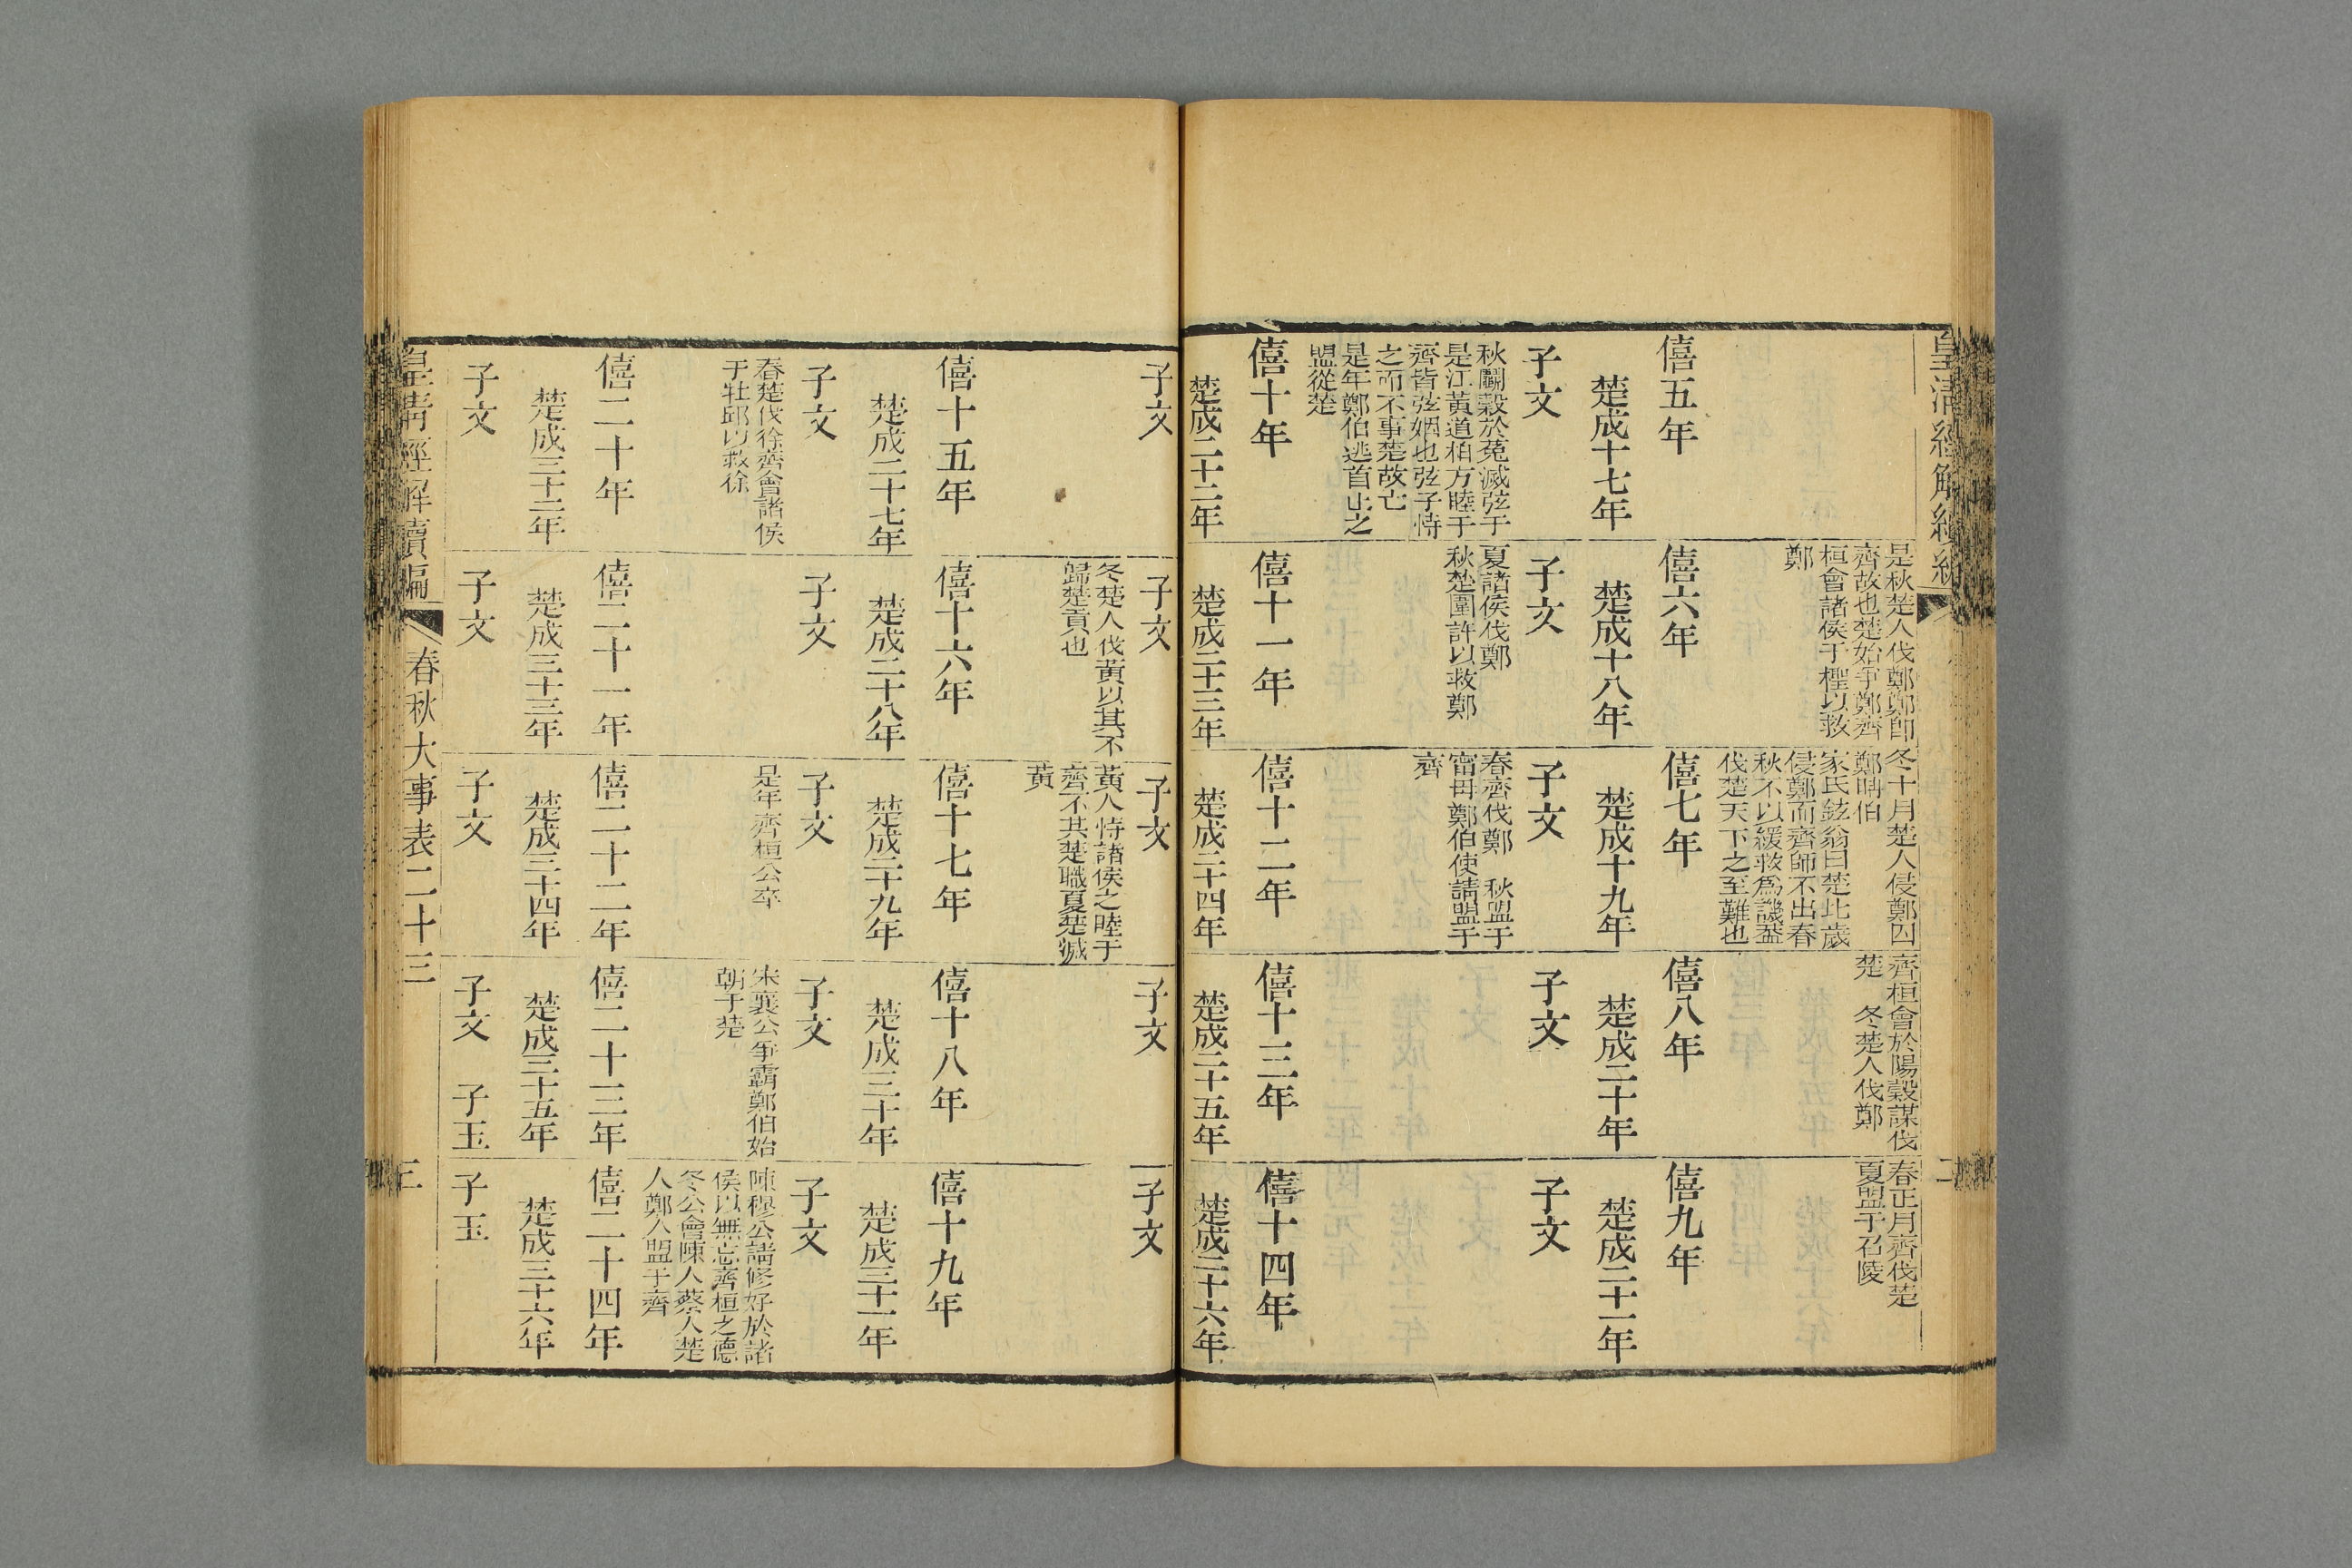 皇清經解續編
二
是秋楚人伐鄭鄭卽
齊故也楚始爭鄭齊
桓會諸侯于檉以救
鄭
冬十月楚人侵鄭囚
鄭聃伯
家氏鉉翁曰楚比歲
侵鄭而齊師不出春
秋不以緩救爲譏蓋
伐楚天下之至難也
齊桓會於陽穀謀伐
楚 冬楚人伐鄭
春正月齊伐楚
夏盟于召陵
僖五年
楚成十七年
子文
秋鬬穀於菟滅弦于
是江黃道柏方睦于
齊皆弦姻也弦子恃
之而不事楚故亡
是年鄭伯逃首止之
盟從楚
僖六年
楚成十八年
子文
夏諸侯伐鄭
秋楚圍許以救鄭
僖七年
楚成十九年
子文
春齊伐鄭 秋盟于
甯母鄭伯使請盟于
齊
僖八年
楚成二十年
子文
僖九年
楚成二十一年
子文
僖十年
楚成二十二年
子文
僖十一年
楚成二十三年
子文
冬楚人伐黃以其不
歸楚貢也
僖十二年
楚成二十四年
子文
黃人恃諸侯之睦于
齊不共楚職夏楚滅
黃
僖十三年
楚成二十五年
子文
僖十四年
楚成二十六年
子文
僖十五年
楚成二十七年
子文
春楚伐徐齊會諸侯
于牡邱以救徐
僖十六年
楚成二十八年
子文
僖十七年
楚成二十九年
子文
是年齊桓公卒
僖十八年
楚成三十年
子文
宋襄公爭霸鄭伯始
朝于楚
僖十九年
楚成三十一年
子文
陳穆公請修好於諸
侯以無忘齊桓之德
冬公會陳人蔡人楚
人鄭人盟于齊
僖二十年
楚成三十二年
子文
僖二十一年
楚成三十三年
子文
僖二十二年
楚成三十四年
子文
僖二十三年
楚成三十五年
子文 子玉
僖二十四年
楚成三十六年
子玉
皇清經解續編
春秋大事表二十三
三